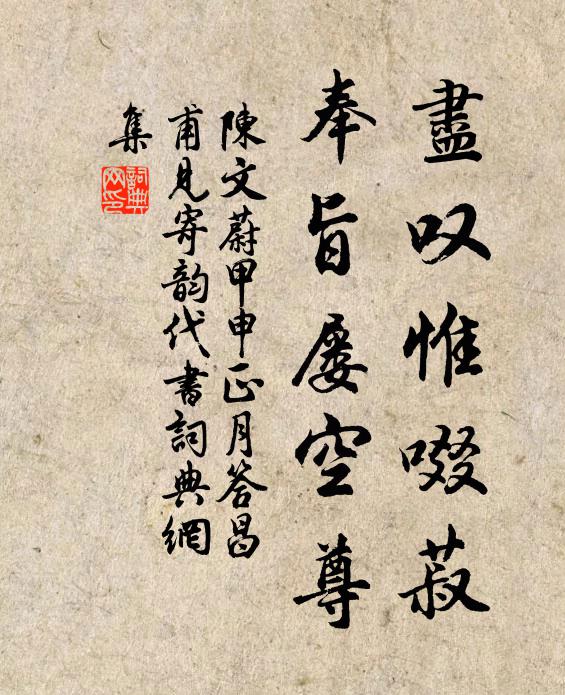 盡叹惟啜菽
奉旨屡空尊
陳文蔚甲申正月答昌
甫見寄韵代書詞典網
集
詞典
网印